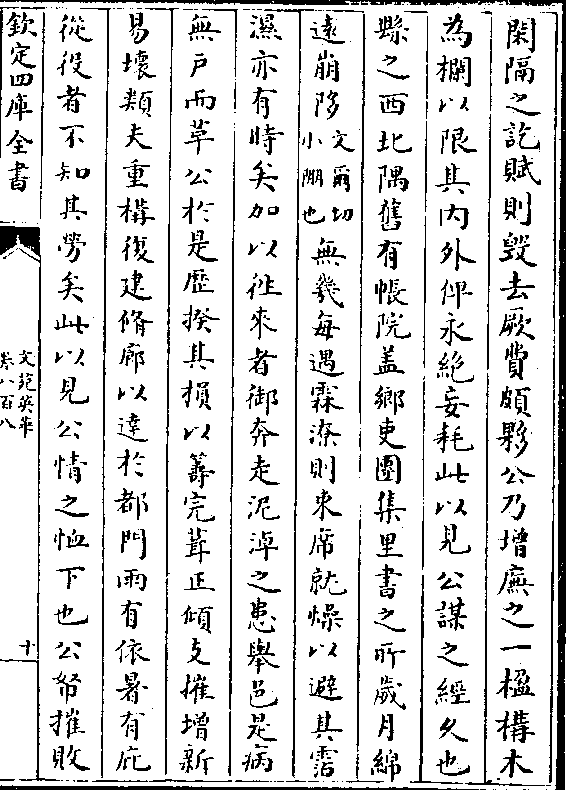 閑隔之訖賦則毀去厥費頗夥公乃增廡之一楹構木
為欄以限其内外俾永絶妄耗此以見公謀之經久也
縣之西北隅舊有帳院盖鄉吏團集里書之所歲月綿
遠崩陊文爾切小崩也無幾每遇霖潦則束席就燥以避其霑
濕亦有時矣加以徃來者御奔走泥淖之患舉邑是病
無戸而草公於是歴揆其損以籌完葺正傾支摧增新
易壞類夫重構復建脩廊以達於都門雨有依暑有庇
從役者不知其勞矣此以見公情之恤下也公帑摧敗
欽定四庫全書
文苑英華
卷八百八
十